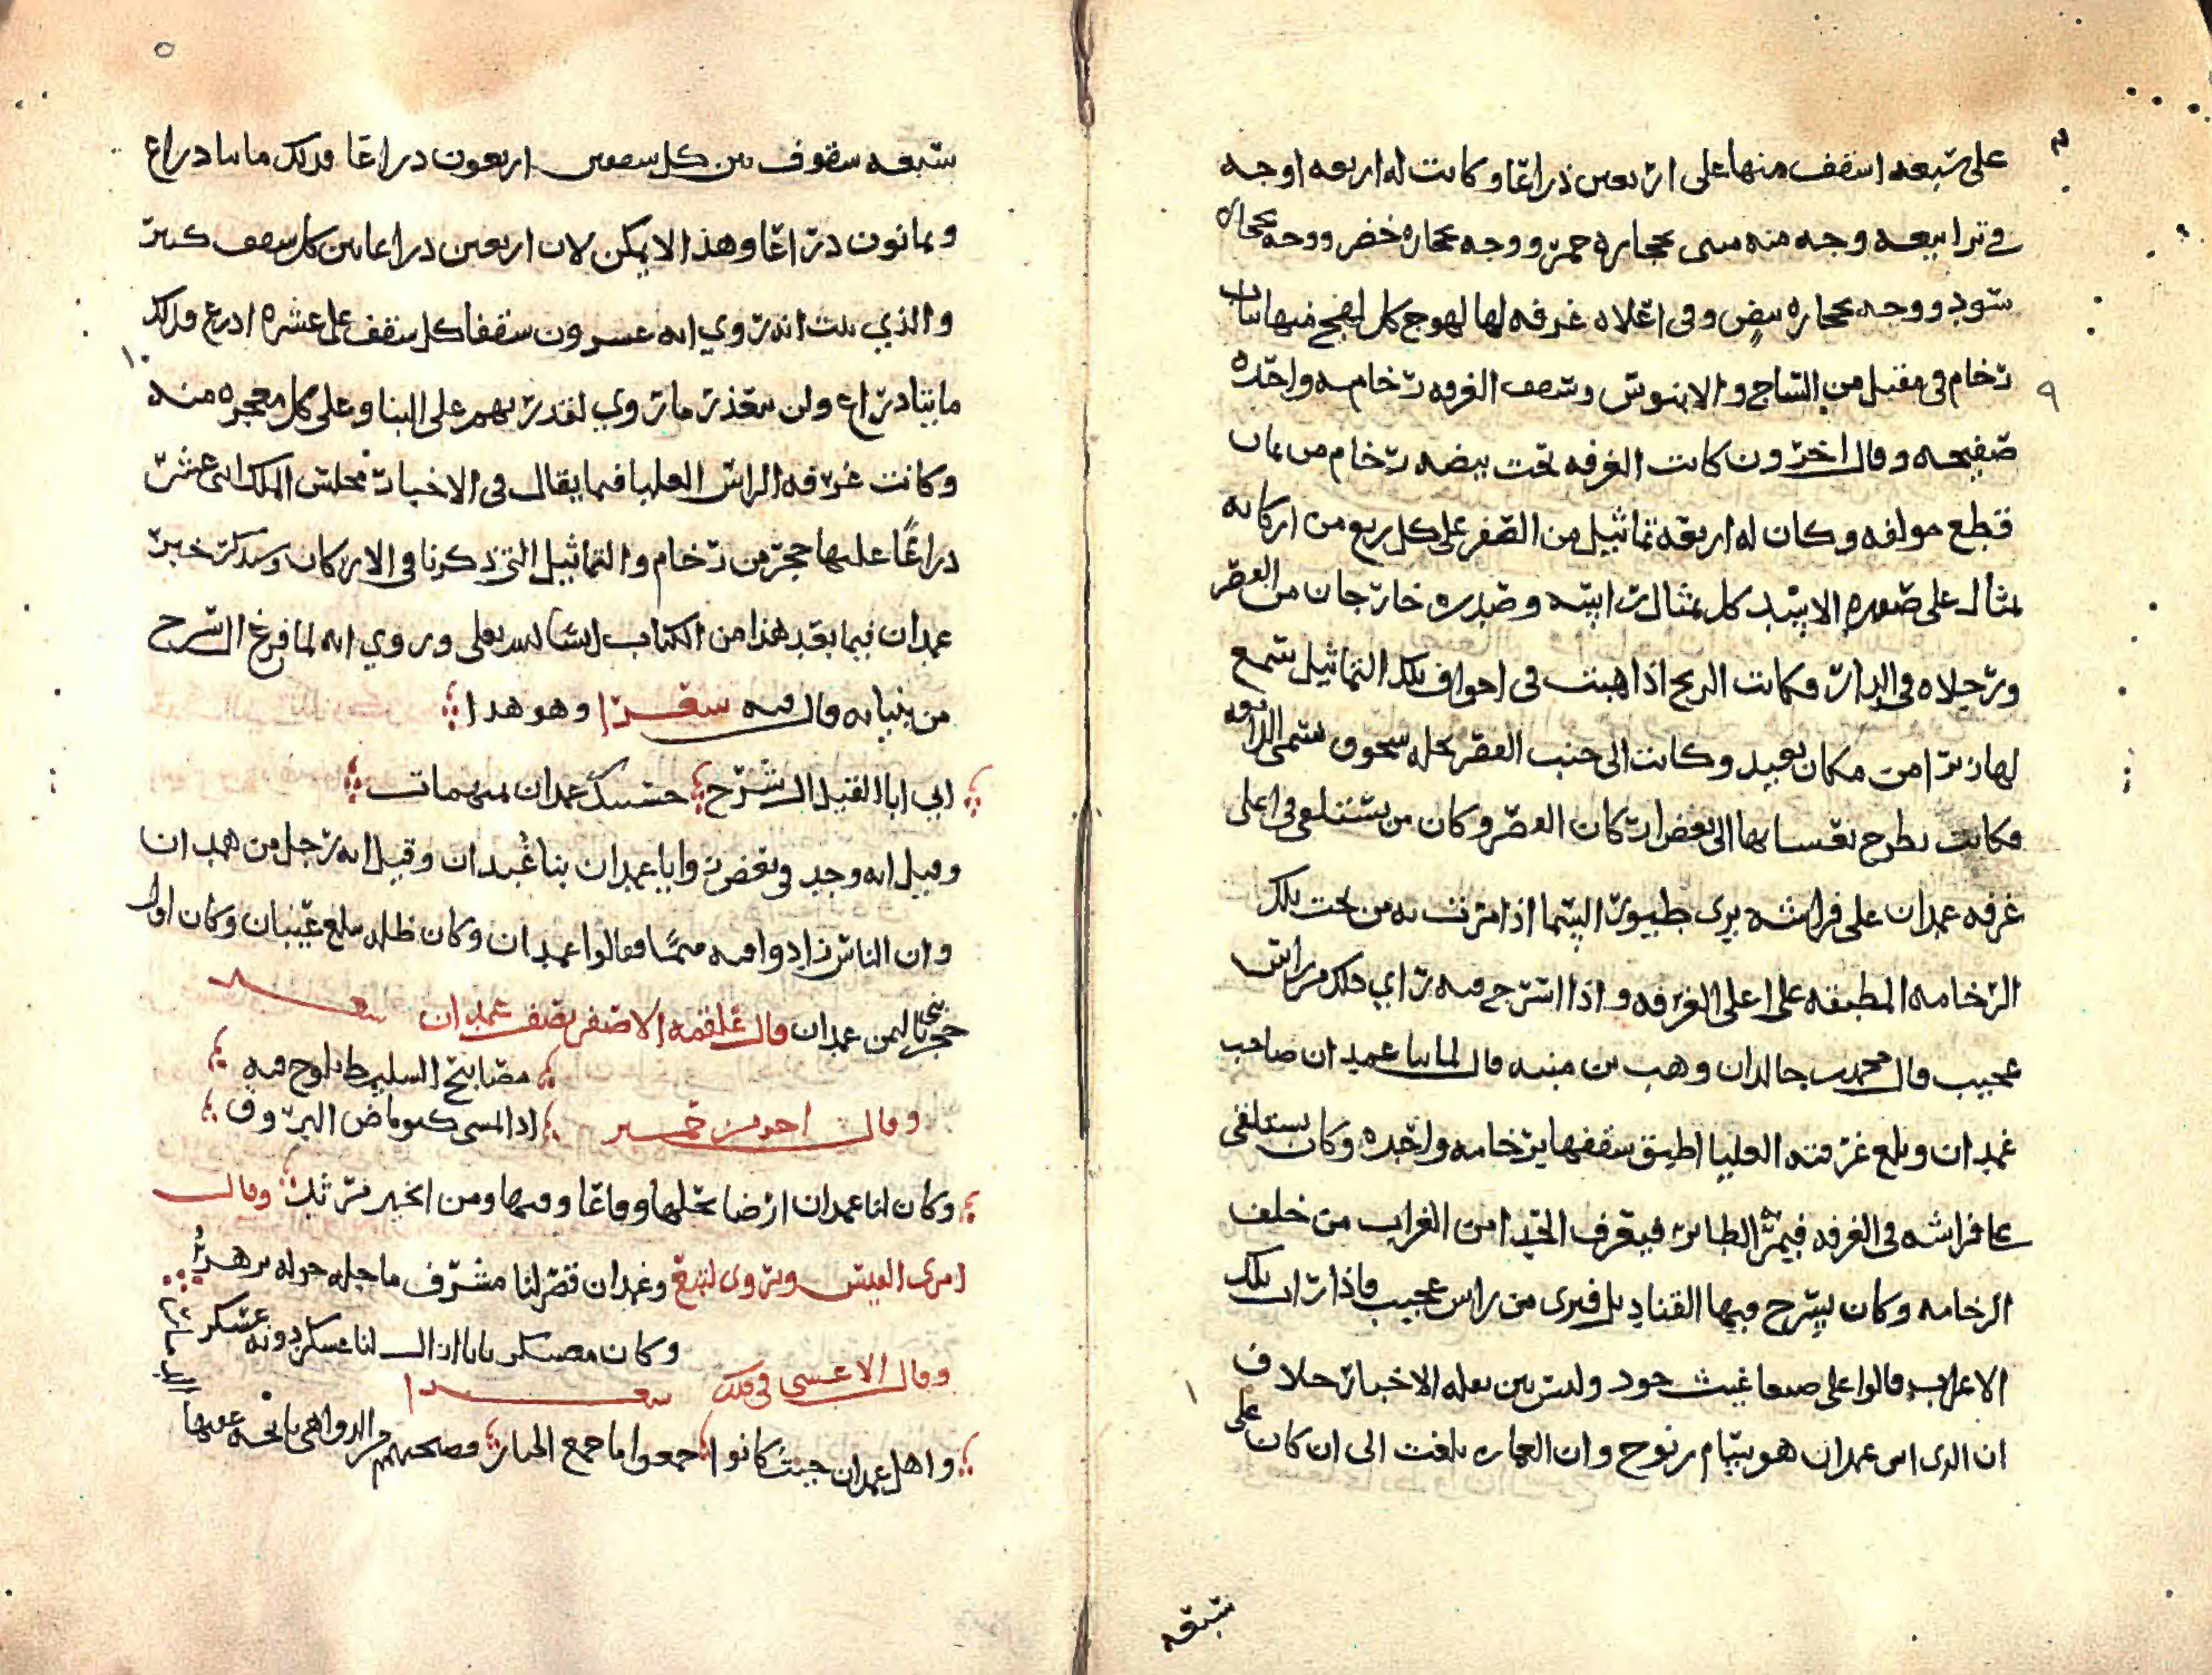 على سبعه اسقف منها على اربعين ذراعا وكانت له اربعه اوجه
في ترابيعه وجه منه مبنى بحجاره حمر ووجه بحجاره خضر ووجه بحجاره
سود ووجه بحجاره بيض وفى اعلاه غرفه لها لهوج كل لهج فيها باب
رخام فى مقبل من الساج والابنوس وسقف الغرفه رخامه واحده
صفيحه وقال اخرون كانت الغرفه تحت بيضه رخام من ثمان
قطع مولفه وكان له اربعه تماثيل من الصفر على كل ربع من اركانه
تمثال على صوره الاسد كل تمثال رابيته وصدره خارجان من القصر
ورجلاه فى الدار وكانت الريح اذا هبت فى اجواف تلك التماثيل سمع
لها زئرا من مكان بعيد وكانت الى جنب القصر نخله سحوق تسمى الدالقه
وكانت تطرح بعسبانها الى بعض اركان القصر وكان من يستلقى فى اعلى
غرفه غمدان على فراشه يرى طيور السما اذا مرت به من تحت تلك
الرخامه المطبقه على اعلى الغرفه واذا اسرج فيه راي ذلك من راس
عجيب قال محمد بن خالد ان وهب بن منبه قال لما بنا غمدان صاحب
غمدان وبلغ غرفته العليا اطبق سقفها برخامه واحده وكان يستلقى
على فراشه فى الغرفه فيمر الطائر فيعرف الحدا من الغراب من خلف
الرخامه وكان يسرج فيها القناديل فيرى من راس عجيب فاذا رات تلك
الاعراب قالوا على صنعا غيث جود وليس بين نقله الاخبار خلاف
ان الذى اسس غمدان هو سام بن نوح وان العماره بلغت الى ان كان على
سبعه
سبعه سقوف بين كل سقفين اربعون ذراعا فذلك مايتا ذراع
وثمانون ذراعا وهذا لا يمكن لان اربعين ذراعا بين كل سقف كبير
والذي يثبت انه روي انه عشرون سقفا كل سقف على عشره اذرع فذلك
مايتا ذراع ولن يتعذر ما روي لقدرتهم على البنا وعلى كل معجزه منه
وكانت غرفه الراس العليا فيما يقال فى الاخبار مجلس الملك اثنى عشر
ذراعا عليها حجر من رخام والتماثيل التى ذكرنا فى الاركان وسنذكر خبر
غمدان فيما بعد هذا من الكتاب انشا الله تعلى وروي انه لما فرغ الشرح
من بنيانه قال فيه سقرا وهو هذا
ابي ابا القيل الشرح حسبك غمدان بمبهمات
وقيل انه وجد فى بعض زوايا غمدان بنا غمدان وقيل انه رجل من همدان
وان الناس زادوا فيه ميما فقالوا غمدان وكان ظله يبلغ عيبان وكان اول
حجر بنى باليمن غمدان قال علقمه الاصفر يصف غمدان شعر
مصابيح السليط تلوح فيه
اذا امسى كتوماض البروق
وقال احد من حمير
وكان لنا غمدان ارضا نحلها وقاعا وفيها ومن الخير مرثد وقال
امرى القيس وتروى لتبع وغمدان قصر لنا مشرف
وقال الاعشى فى ذلك شعرا
واهل غمدان حيث كانوا اجمعوا ما جمع الخيار فصبحتهم من الدواهى نائحه عقبها